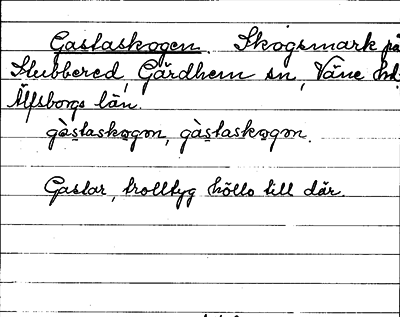 Gastaskogen. Skogsmark på
Slubbered, Gärdhem sn, Väne hd.
Älfsborgs län.
gàstaskogən, gàstaskogən.
Gastar, trolltyg höllo till där.